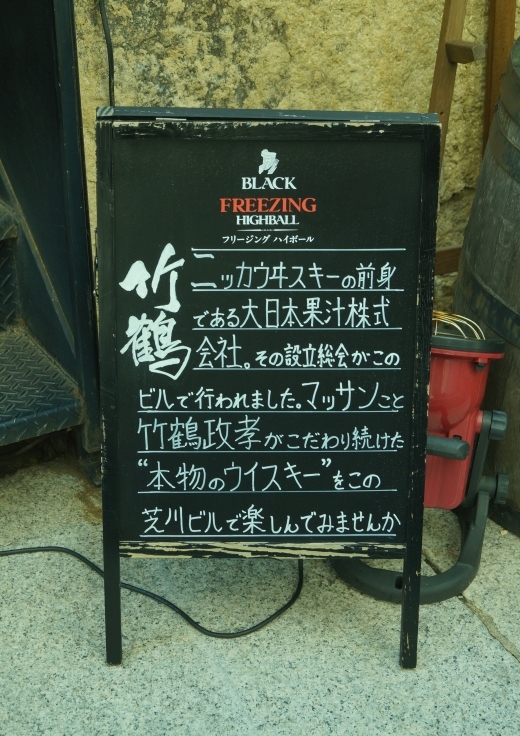 BLACK
FREEZING
HIGHBALL
フリージング ハイボール
竹鶴
ニッカウヰスキーの前身
である大日本果汁株式
会社。その設立総会がこの
ビルで行われました。マッサンこと
竹鶴政孝がこだわり続けた
“本物のウイスキー”をこの
芝川ビルで楽しんでみませんか